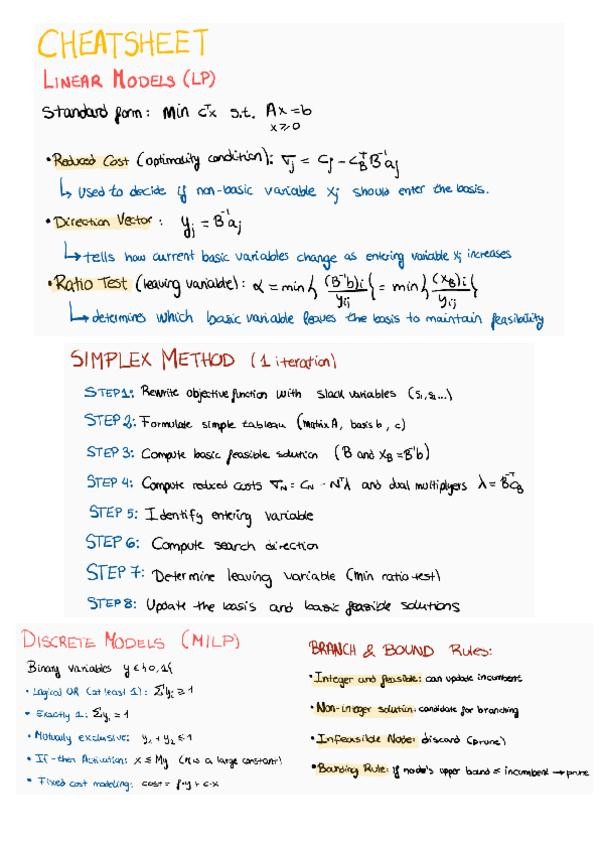 CHEATSHEET
LINEAR MODELS (LP)
Standard form: min cᵀx s.t. Ax=b
x≥0
• Reduced Cost (optimality condition): σⱼ = cⱼ - c_Bᵀ B⁻¹aⱼ
↳ used to decide if non-basic variable xⱼ should enter the basis.
• Direction Vector: yⱼ = B⁻¹aⱼ
↳ tells how current basic variables change as entering variable xⱼ increases
• Ratio Test (leaving variable): α = min{ (B⁻¹b)i / yᵢⱼ } = min{ (x_B)i / yᵢⱼ }
↳ determines which basic variable leaves the basis to maintain feasibility
SIMPLEX METHOD (1 iteration)
STEP 1: Rewrite objective function with slack variables (s₁,s₂...)
STEP 2: Formulate simple tableau (matrix A, basis b, c)
STEP 3: Compute basic feasible solution (B and x_B = B⁻¹b)
STEP 4: Compute reduced costs σ_N = c_N - Nᵀλ and dual multiplyers λ = B⁻ᵀc_B
STEP 5: Identify entering variable
STEP 6: Compute search direction
STEP 7: Determine leaving variable (min ratio test)
STEP 8: Update the basis and basic feasible solutions
DISCRETE MODELS (MILP)
Binary variables y ∈ {0,1}
• Logical OR (at least 1): Σyᵢ ≥ 1
• Exactly 1: Σyᵢ = 1
• Mutually exclusive: y₁ + y₂ ≤ 1
• If-then Activation: x ≤ My (M is a large constant)
• Fixed cost modeling: cost = f·y + c·x
BRANCH & BOUND Rules:
• Integer and feasible: can update incumbent
• Non-integer solution: candidate for branching
• Infeasible Node: discard (prune)
• Bounding Rule: if node's upper bound ≤ incumbent → prune